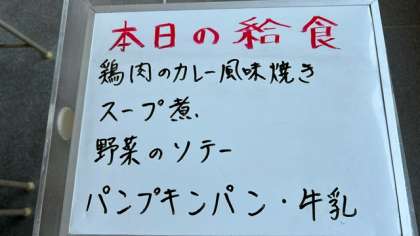 本日の給食
鶏肉のカレー風味焼き
スープ煮
野菜のソテー
パンプキンパン・牛乳